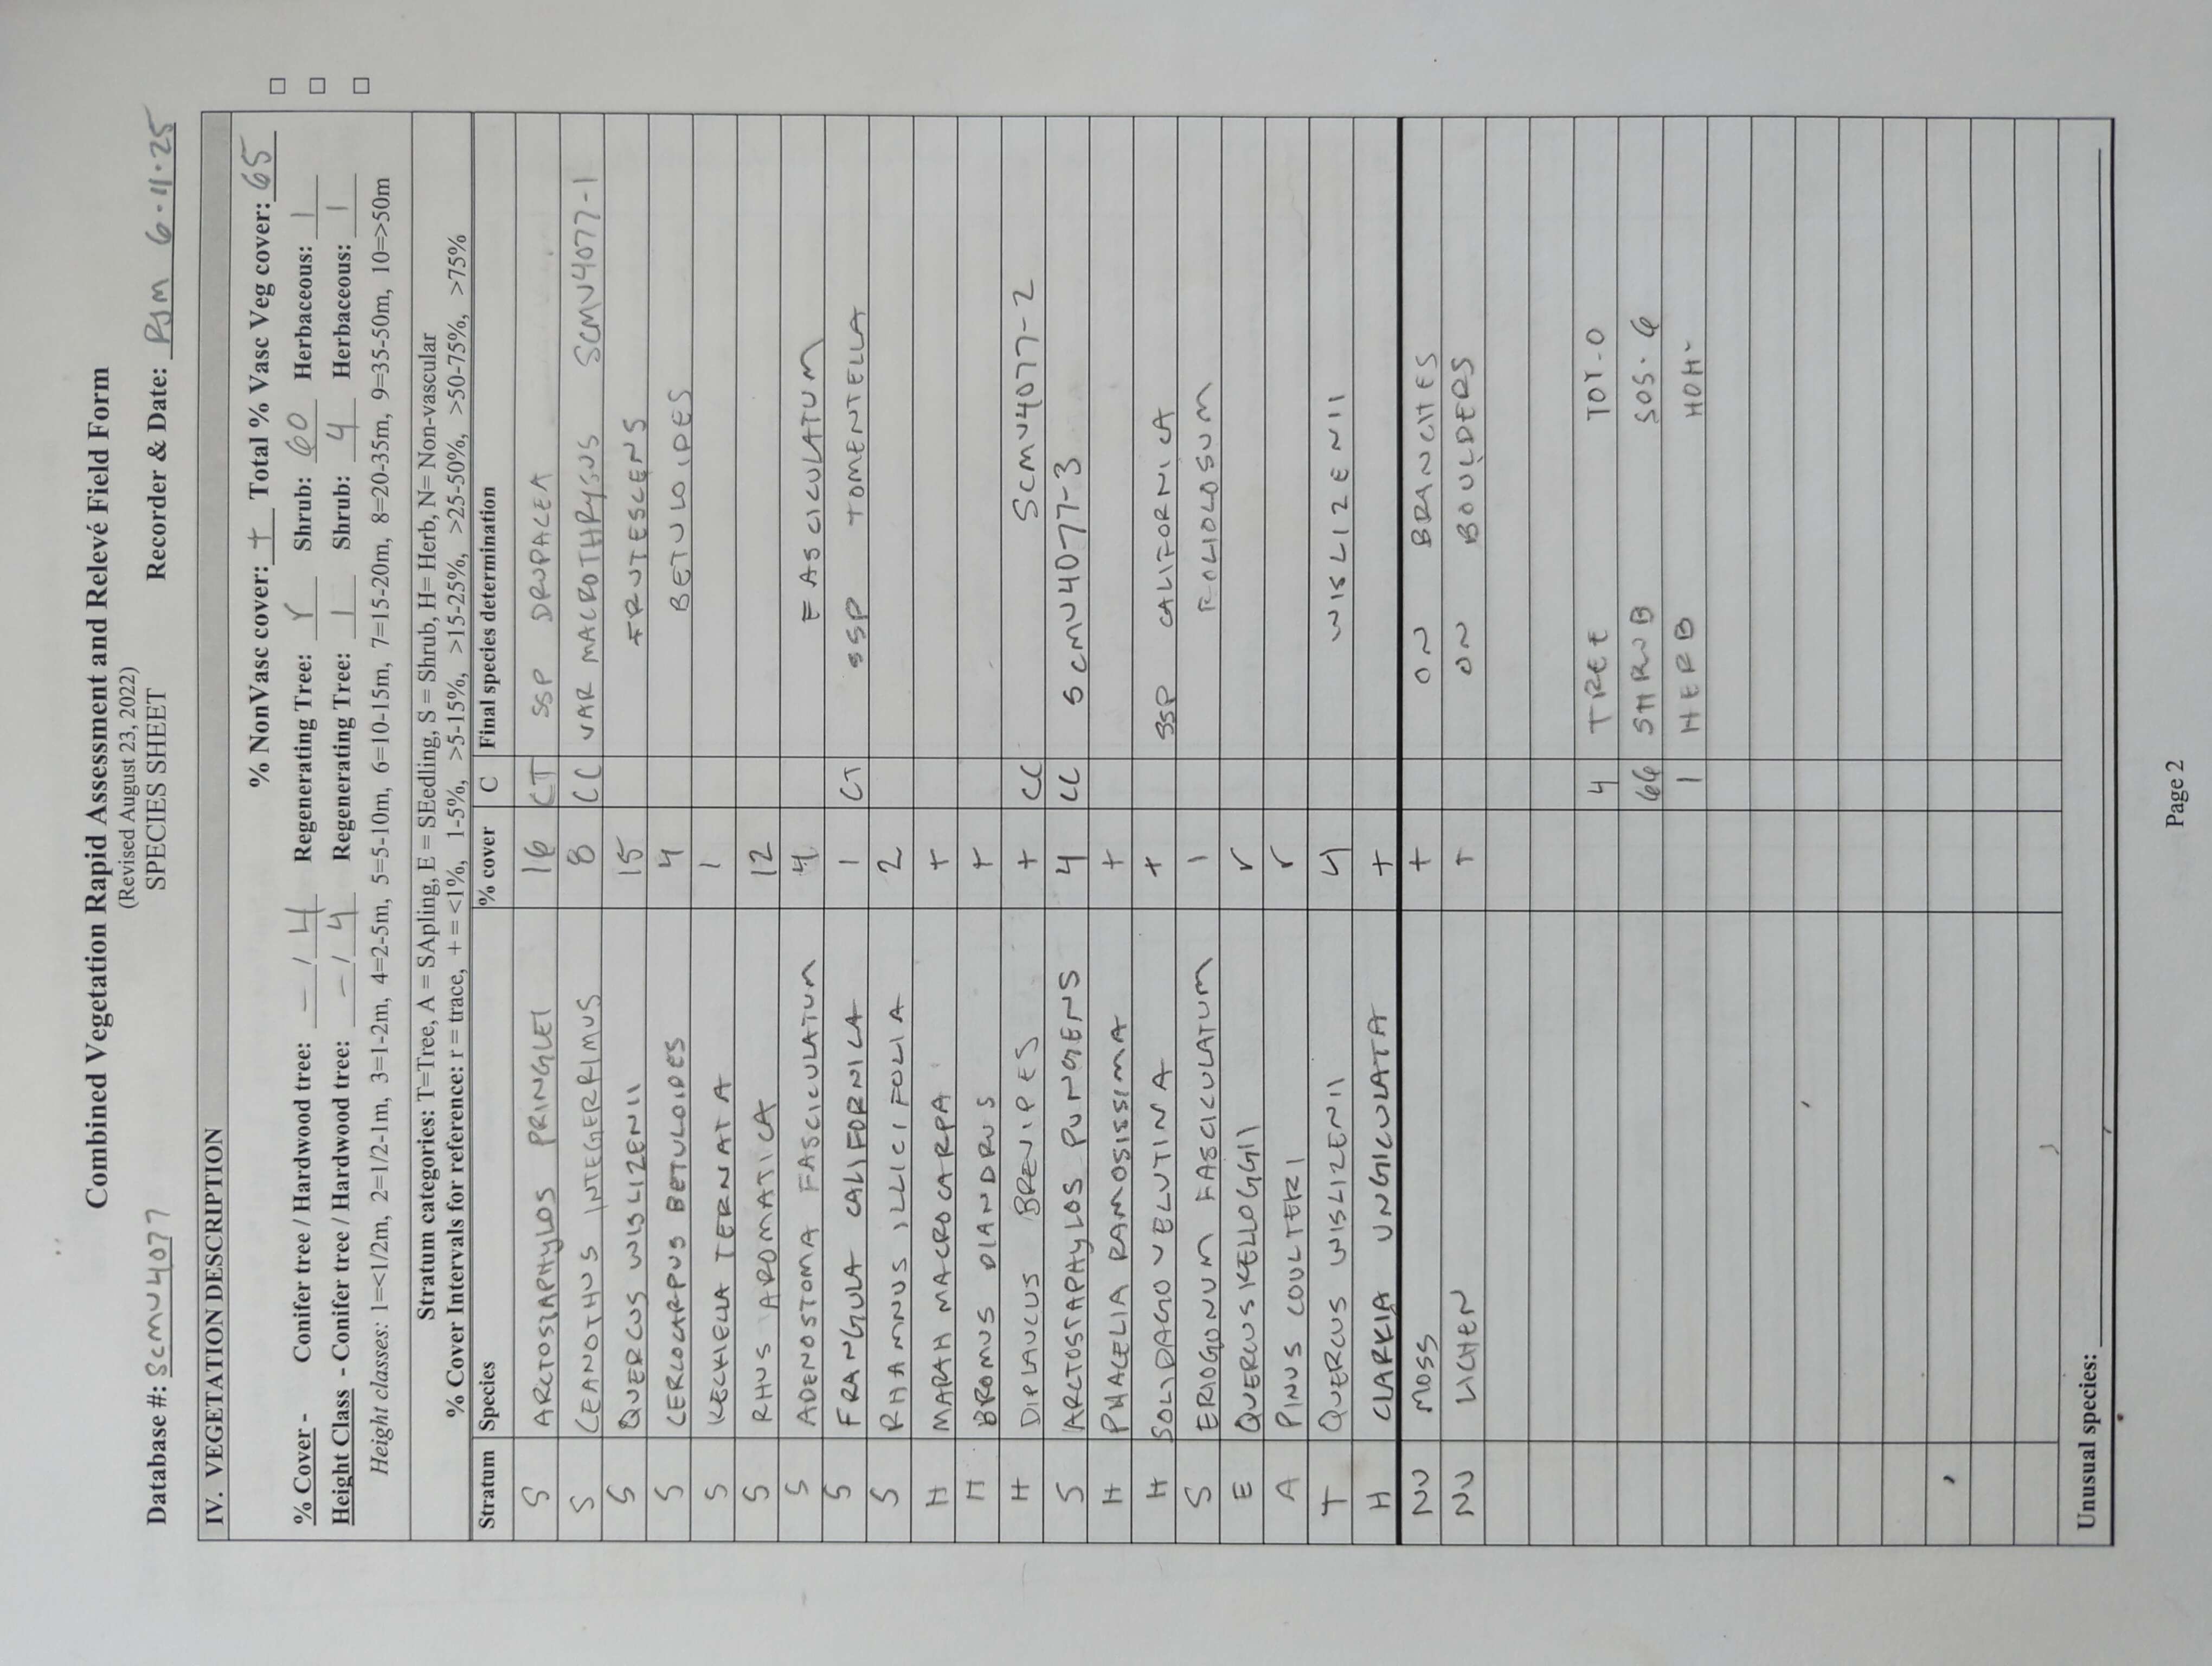 Combined Vegetation Rapid Assessment and Relevé Field Form
(Revised August 23, 2022)
SPECIES SHEET
Database #: SCMU4077 Recorder & Date: PJM 6·11·25
IV. VEGETATION DESCRIPTION
% NonVasc cover: + Total % Vasc Veg cover: 65
% Cover - Conifer tree / Hardwood tree: – / 4 Regenerating Tree: r Shrub: 60 Herbaceous: 1
Height Class - Conifer tree / Hardwood tree: – / 4 Regenerating Tree: 1 Shrub: 4 Herbaceous: 1
Height classes: 1=<1/2m, 2=1/2-1m, 3=1-2m, 4=2-5m, 5=5-10m, 6=10-15m, 7=15-20m, 8=20-35m, 9=35-50m, 10=>50m
Stratum categories: T=Tree, A = SApling, E = SEedling, S = Shrub, H= Herb, N= Non-vascular
% Cover Intervals for reference: r = trace, + = <1%, 1-5%, >5-15%, >15-25%, >25-50%, >50-75%, >75%
Stratum Species % cover C Final species determination
S ARCTOSTAPHYLOS PRINGLEI 16 CT SSP DRUPACEA
S CEANOTHUS INTEGERRIMUS 8 CC VAR MACROTHRYSUS SCMU4077-1
S QUERCUS WISLIZENII 15 FRUTESCENS
S CERCOCARPUS BETULOIDES 4 BETULOIDES
S KECKIELLA TERNATA 1
S RHUS AROMATICA 12
S ADENOSTOMA FASCICULATUM 4 FASCICULATUM
S FRANGULA CALIFORNICA 1 CT SSP TOMENTELLA
S RHAMNUS ILLICIFOLIA 2
H MARAH MACROCARPA +
H BROMUS DIANDRUS +
H DIPLAUCUS BREVIPES + CC SCMU4077-2
S ARCTOSTAPHYLOS PUNGENS 4 CC SCMU4077-3
H PHACELIA RAMOSISSIMA +
H SOLIDAGO VELUTINA + SSP CALIFORNICA
S ERIOGONUM FASCICULATUM 1 FOLIOLOSUM
E QUERCUS KELLOGGII r
A PINUS COULTERI r
T QUERCUS WISLIZENII 4 WISLIZENII
H CLARKIA UNGICULATA +
NV MOSS + ON BRANCHES
NV LICHEN + ON BOULDERS
4 TREE TOT·0
66 SHRUB SOS·6
1 HERB HOH·
Unusual species:
Page 2